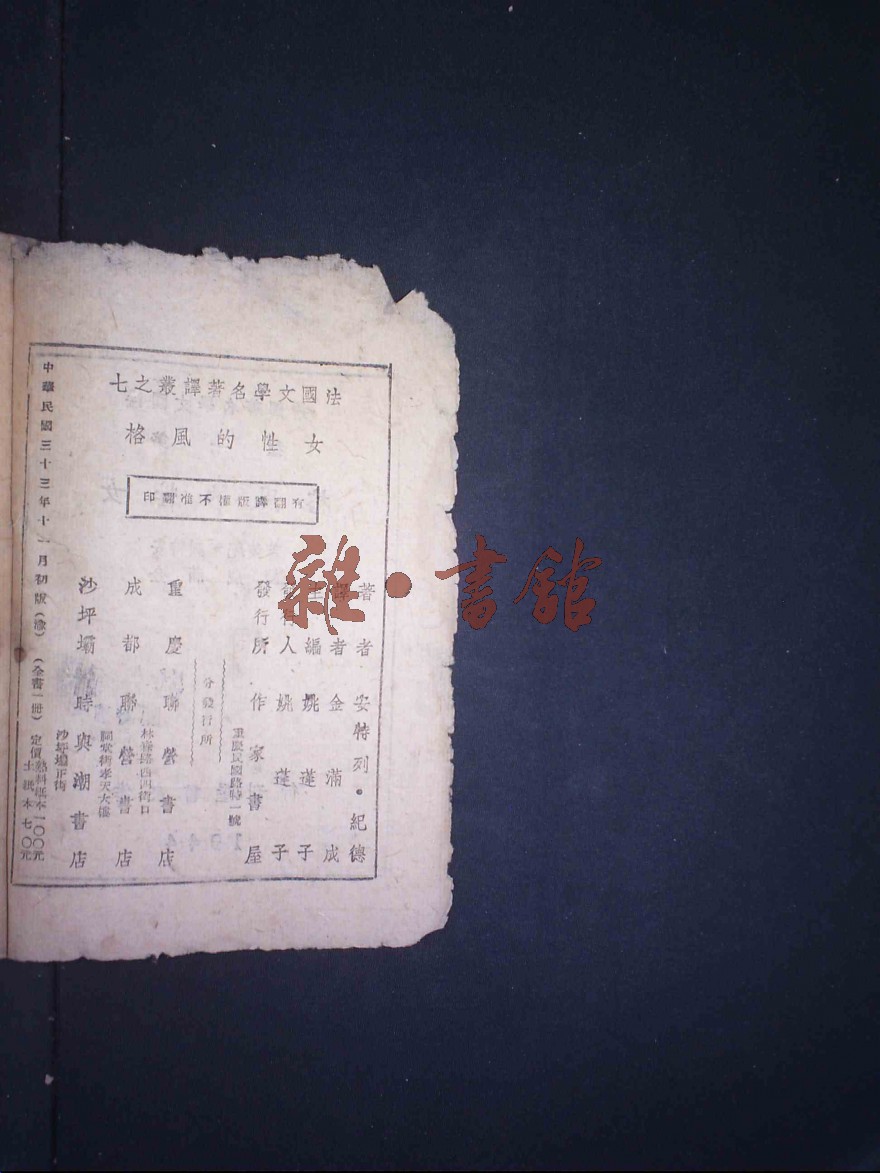 法國文學名著譯叢之七
女性的風格
有翻譯版權不准翻印
著者 安特列・紀德
譯者 金滿成
主編 姚蓬子
發行人 姚蓬子
發行所 作家書屋
重慶民國路特一號
分發行所
重慶聯營書店
林森路西四街口
成都聯營書店
祠堂街孝天大樓
沙坪壩時與潮書店
沙坪壩正街
中華民國三十三年十一月初版(渝)(全書一冊)定價熟料紙本一〇〇元 土紙本七〇元
雜・書館